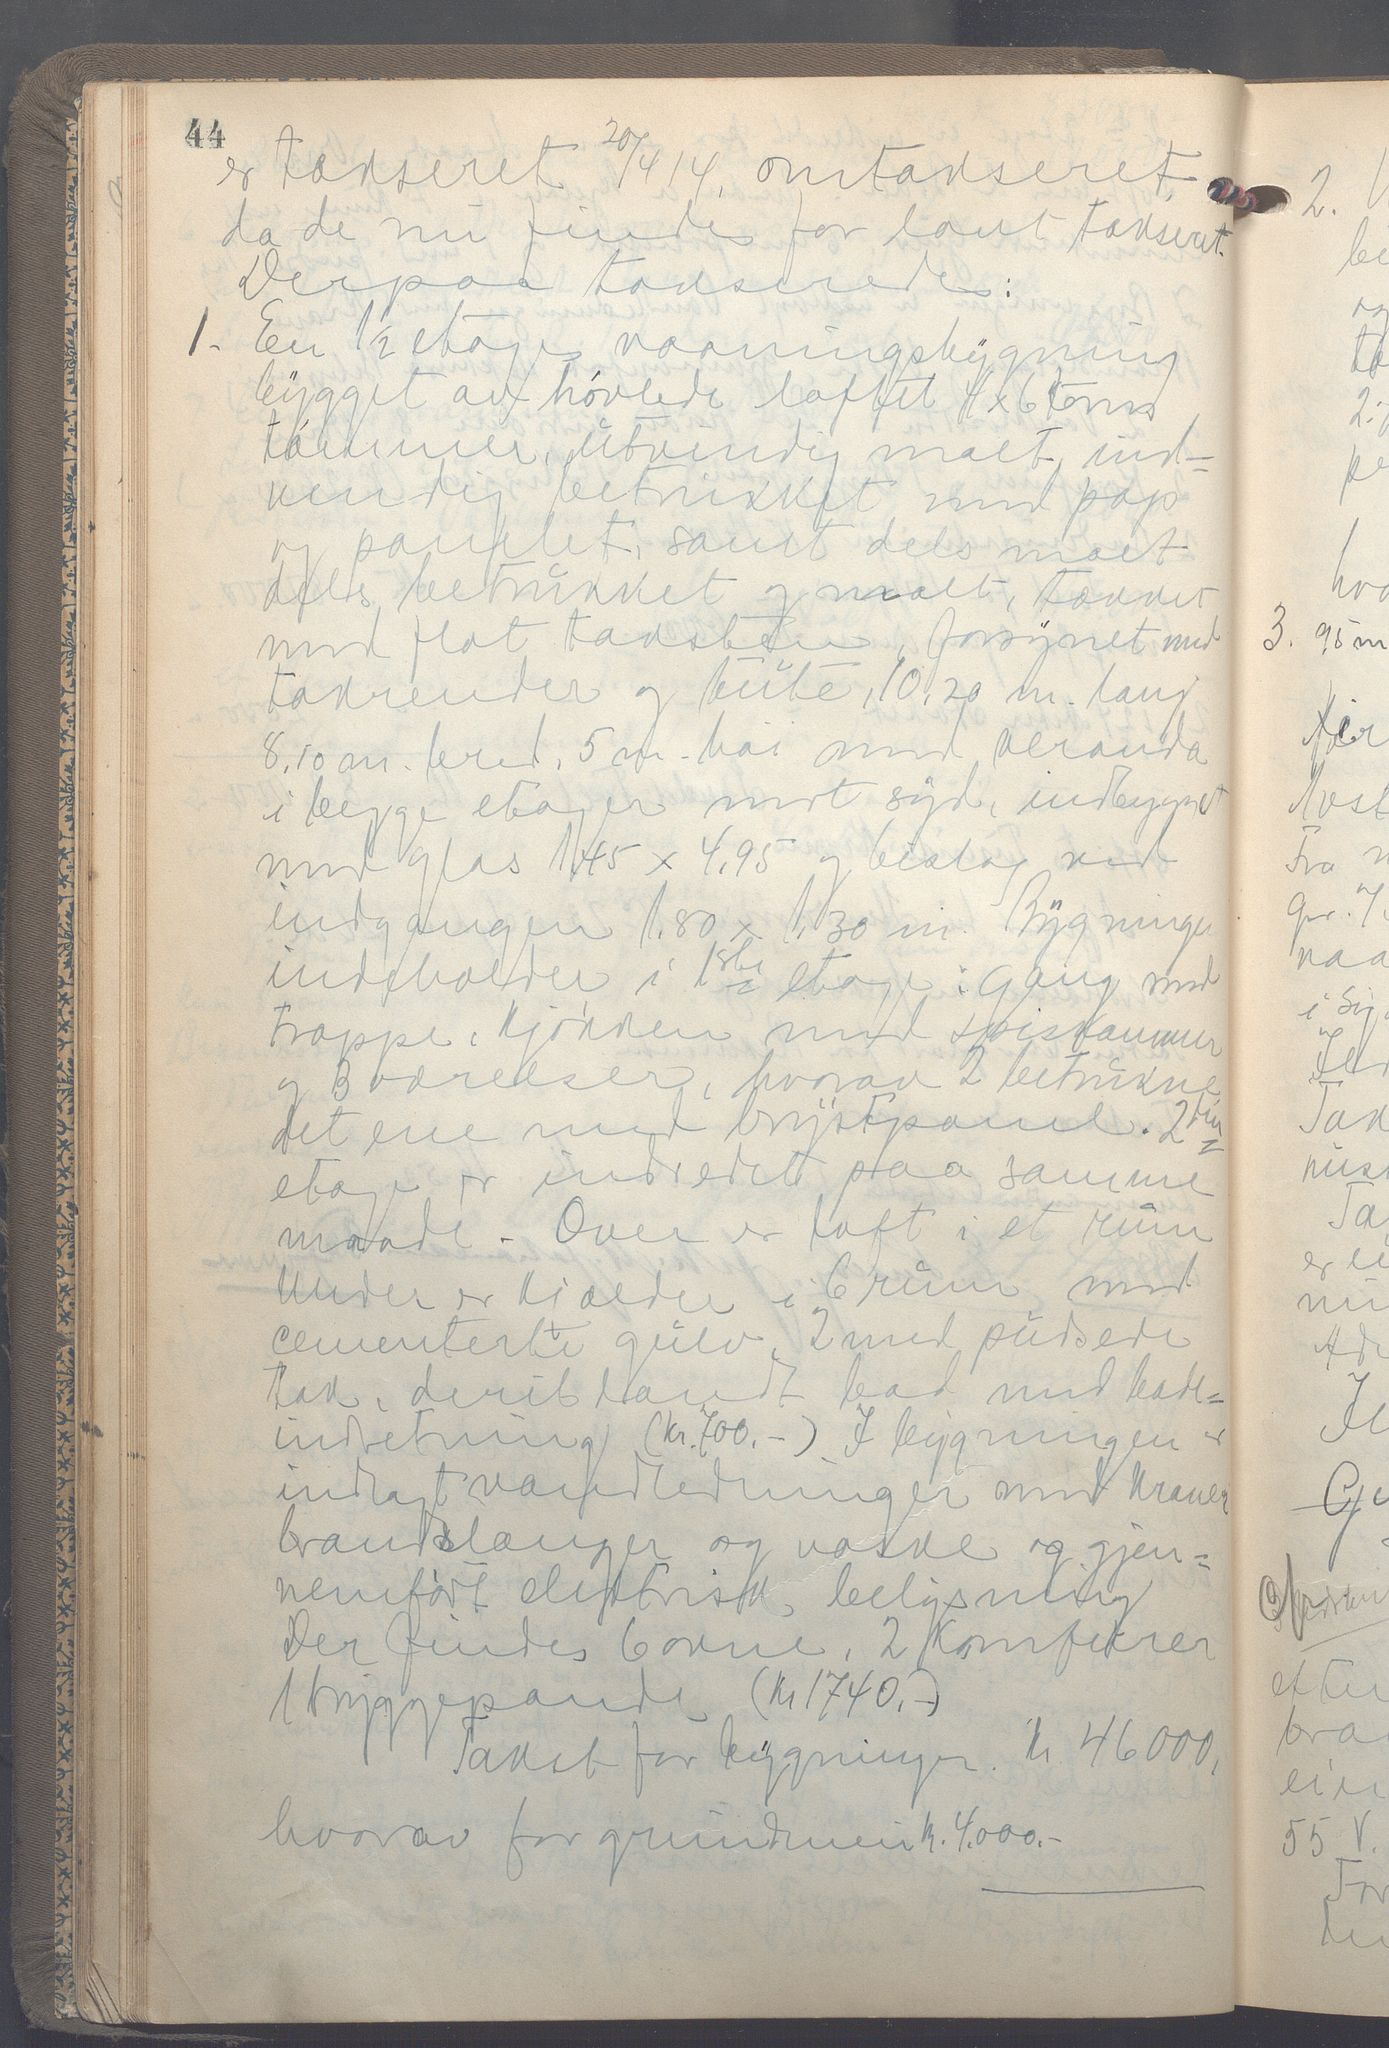 44
er takseret 20/4 14, omtakseret
da de nu findes for lavt takseret.
Derpaa takserede:
1. En 1 1/2 etages vaaningsbygning
bygget av høvlede laftet 4x6 toms
tømmer, utvendig malt, ind=
vendig betrukket med pap
og panelet, samt dels malt
dels betrukket og malt, tækket
med flat taksten, forsynet med
takrender og bute, 10,20 m. lang
8,10 m. bred, 5 m. høi med veranda
i begge etager mot syd, indbygget
med glas 1,45 x 4,95 og bislag ved
indgangen 1,80 x 1,30 m. Bygningen
indeholder i 1ste etage: gang med
trappe, kjøkken med spiskammer
og 3 værelser, hvorav 2 betrukne
det ene med brystpanel. 2den
etage er indredet paa samme
maade. Over er loft i et rum
Under er kjælder i 6 rum med
cementerte gulv, 2 med pudsede
tak, deriblandt bad med bade=
indretning (kr. 700,-) I bygningen er
indlagt vandledninger med kraner
brandslanger og vaske og gjen=
nemført elektrisk belysning
Der findes 6 ovne, 2 komfurer
1 bryggepande (kr 1740,-)
Takst for bygningen. kr. 46000,
hvorav for grundmuren kr. 4,000.-
2.
be
og
2.
pe
hva
3. 95 m
Fra
i
Tak
er
55 V.
For